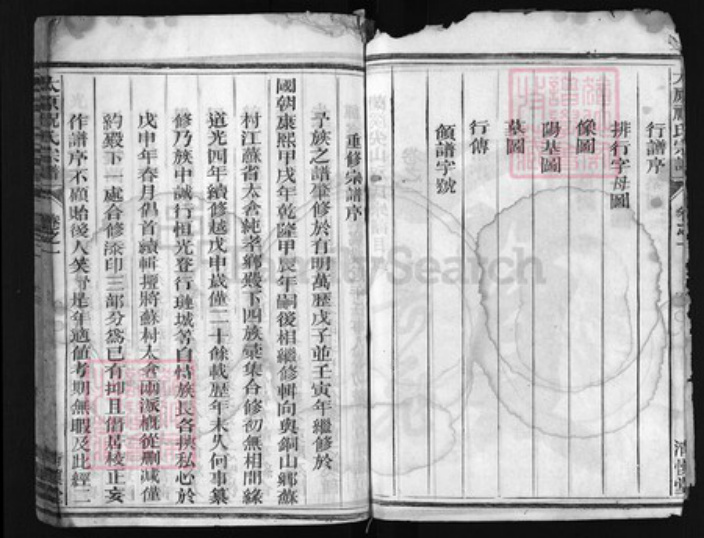 行譜序
排行字母圖
像圖
陽基圖
墓圖
行傳
領譜字號
重修宗譜序
予族之譜肇修於有明萬歷戊子並壬寅年繼修於
國朝康熙甲戌年乾隆甲辰年嗣後相繼修輯向與銅山鄉蘇
村江蘇省太倉純孝鄉殿下四族彙集合修初無相間緣
道光四年續修越戊申歲僅二十餘載歷年未久何事纂
修乃族中誠行恒光登行璉城等自恃族長各挾私心於
戊申年春月倡首續輯擅將蘇村太倉兩派概從刪減僅
約殿下一處合修添印三部分為已有抑且僭居校正妄
作譜序不顧貽後人笑予是年適值考期無暇及此經二
太原
氏宗譜
卷之一
FamilySearch